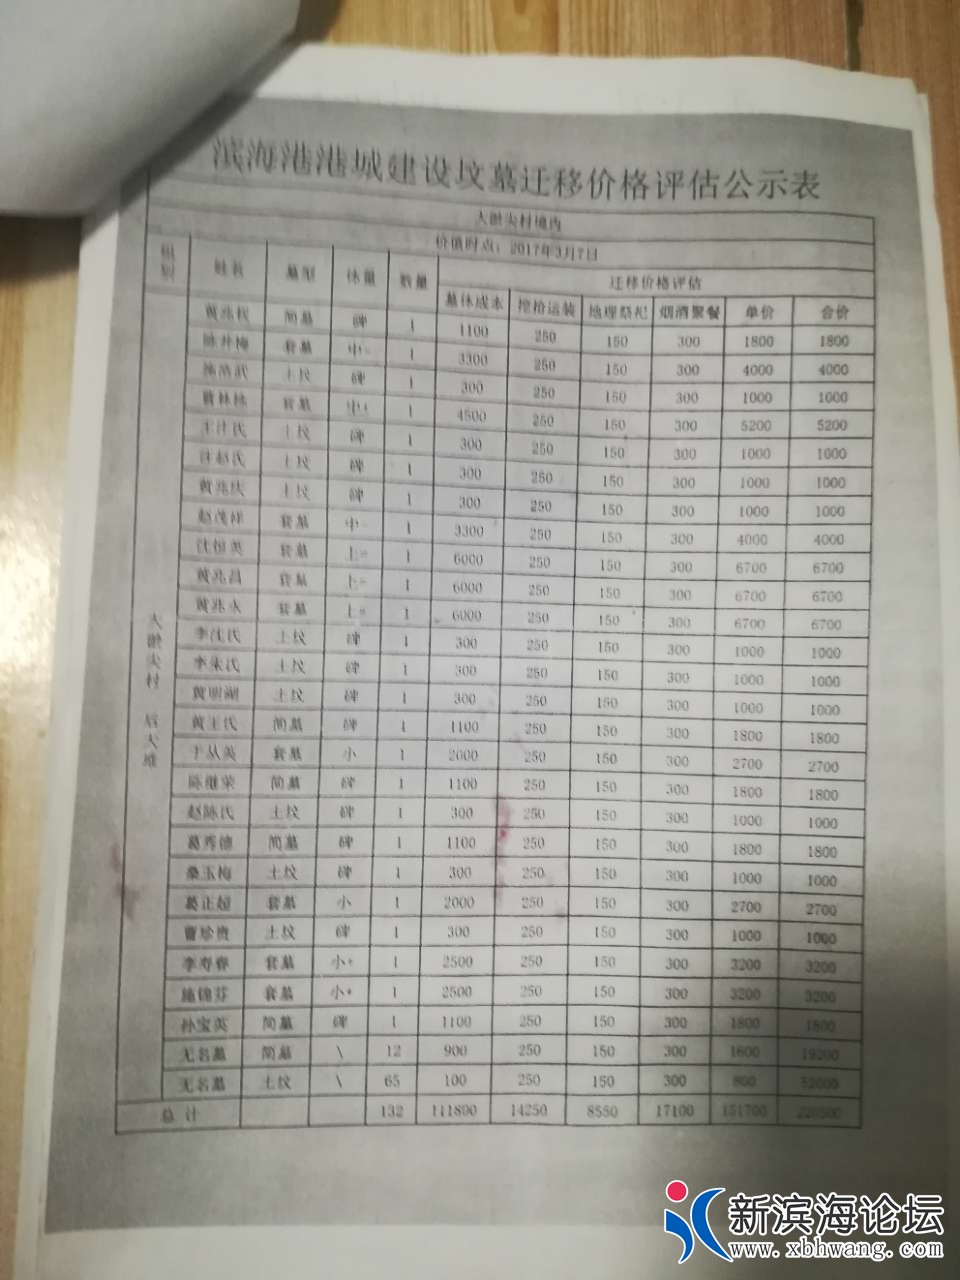 滨海港港城建设坟墓迁移价格评估公示表
大淤尖村境内
价值时点：2017年3月7日
组别 姓名 墓型 体量 数量 迁移价格评估
墓体成本 挖枪运装 地理祭祀 烟酒聚餐 单价 合价
大淤尖村 后大堆
黄兆权 简墓 碑 1 1100 250 150 300 1800 1800
井梅 套墓 中- 1 3300 250 150 300 4000 4000
武 土坟 碑 1 300 250 150 300 1000 1000
套墓 中+ 1 4500 250 150 300 5200 5200
王汪氏 土坟 碑 1 300 250 150 300 1000 1000
汪赵氏 土坟 碑 1 300 250 150 300 1000 1000
黄兆庆 土坟 碑 1 300 250 150 300 1000 1000
赵茂祥 套墓 中- 1 3300 250 150 300 4000 4000
沈恒英 套墓 上= 1 6000 250 150 300 6700 6700
黄兆昌 套墓 上= 1 6000 250 150 300 6700 6700
黄兆永 套墓 上= 1 6000 250 150 300 6700 6700
李沈氏 土坟 碑 1 300 250 150 300 1000 1000
李朱氏 土坟 碑 1 300 250 150 300 1000 1000
黄明湖 土坟 碑 1 300 250 150 300 1000 1000
黄王氏 简墓 碑 1 1100 250 150 300 1800 1800
于从英 套墓 小 1 2000 250 150 300 2700 2700
陈继荣 简墓 碑 1 1100 250 150 300 1800 1800
赵陈氏 土坟 碑 1 300 250 150 300 1000 1000
葛秀德 简墓 碑 1 1100 250 150 300 1800 1800
桑玉梅 土坟 碑 1 300 250 150 300 1000 1000
葛正超 套墓 小 1 2000 250 150 300 2700 2700
曹珍贵 土坟 碑 1 300 250 150 300 1000 1000
李寿春 套墓 小+ 1 2500 250 150 300 3200 3200
施锦芬 套墓 小+ 1 2500 250 150 300 3200 3200
孙宝英 简墓 碑 1 1100 250 150 300 1800 1800
无名墓 简墓 \ 12 900 250 150 300 1600 19200
无名墓 土坟 \ 65 100 250 150 300 800 52000
总计 132 111800 14250 8550 17100 151700
新滨海论坛
www.xbhwang.com